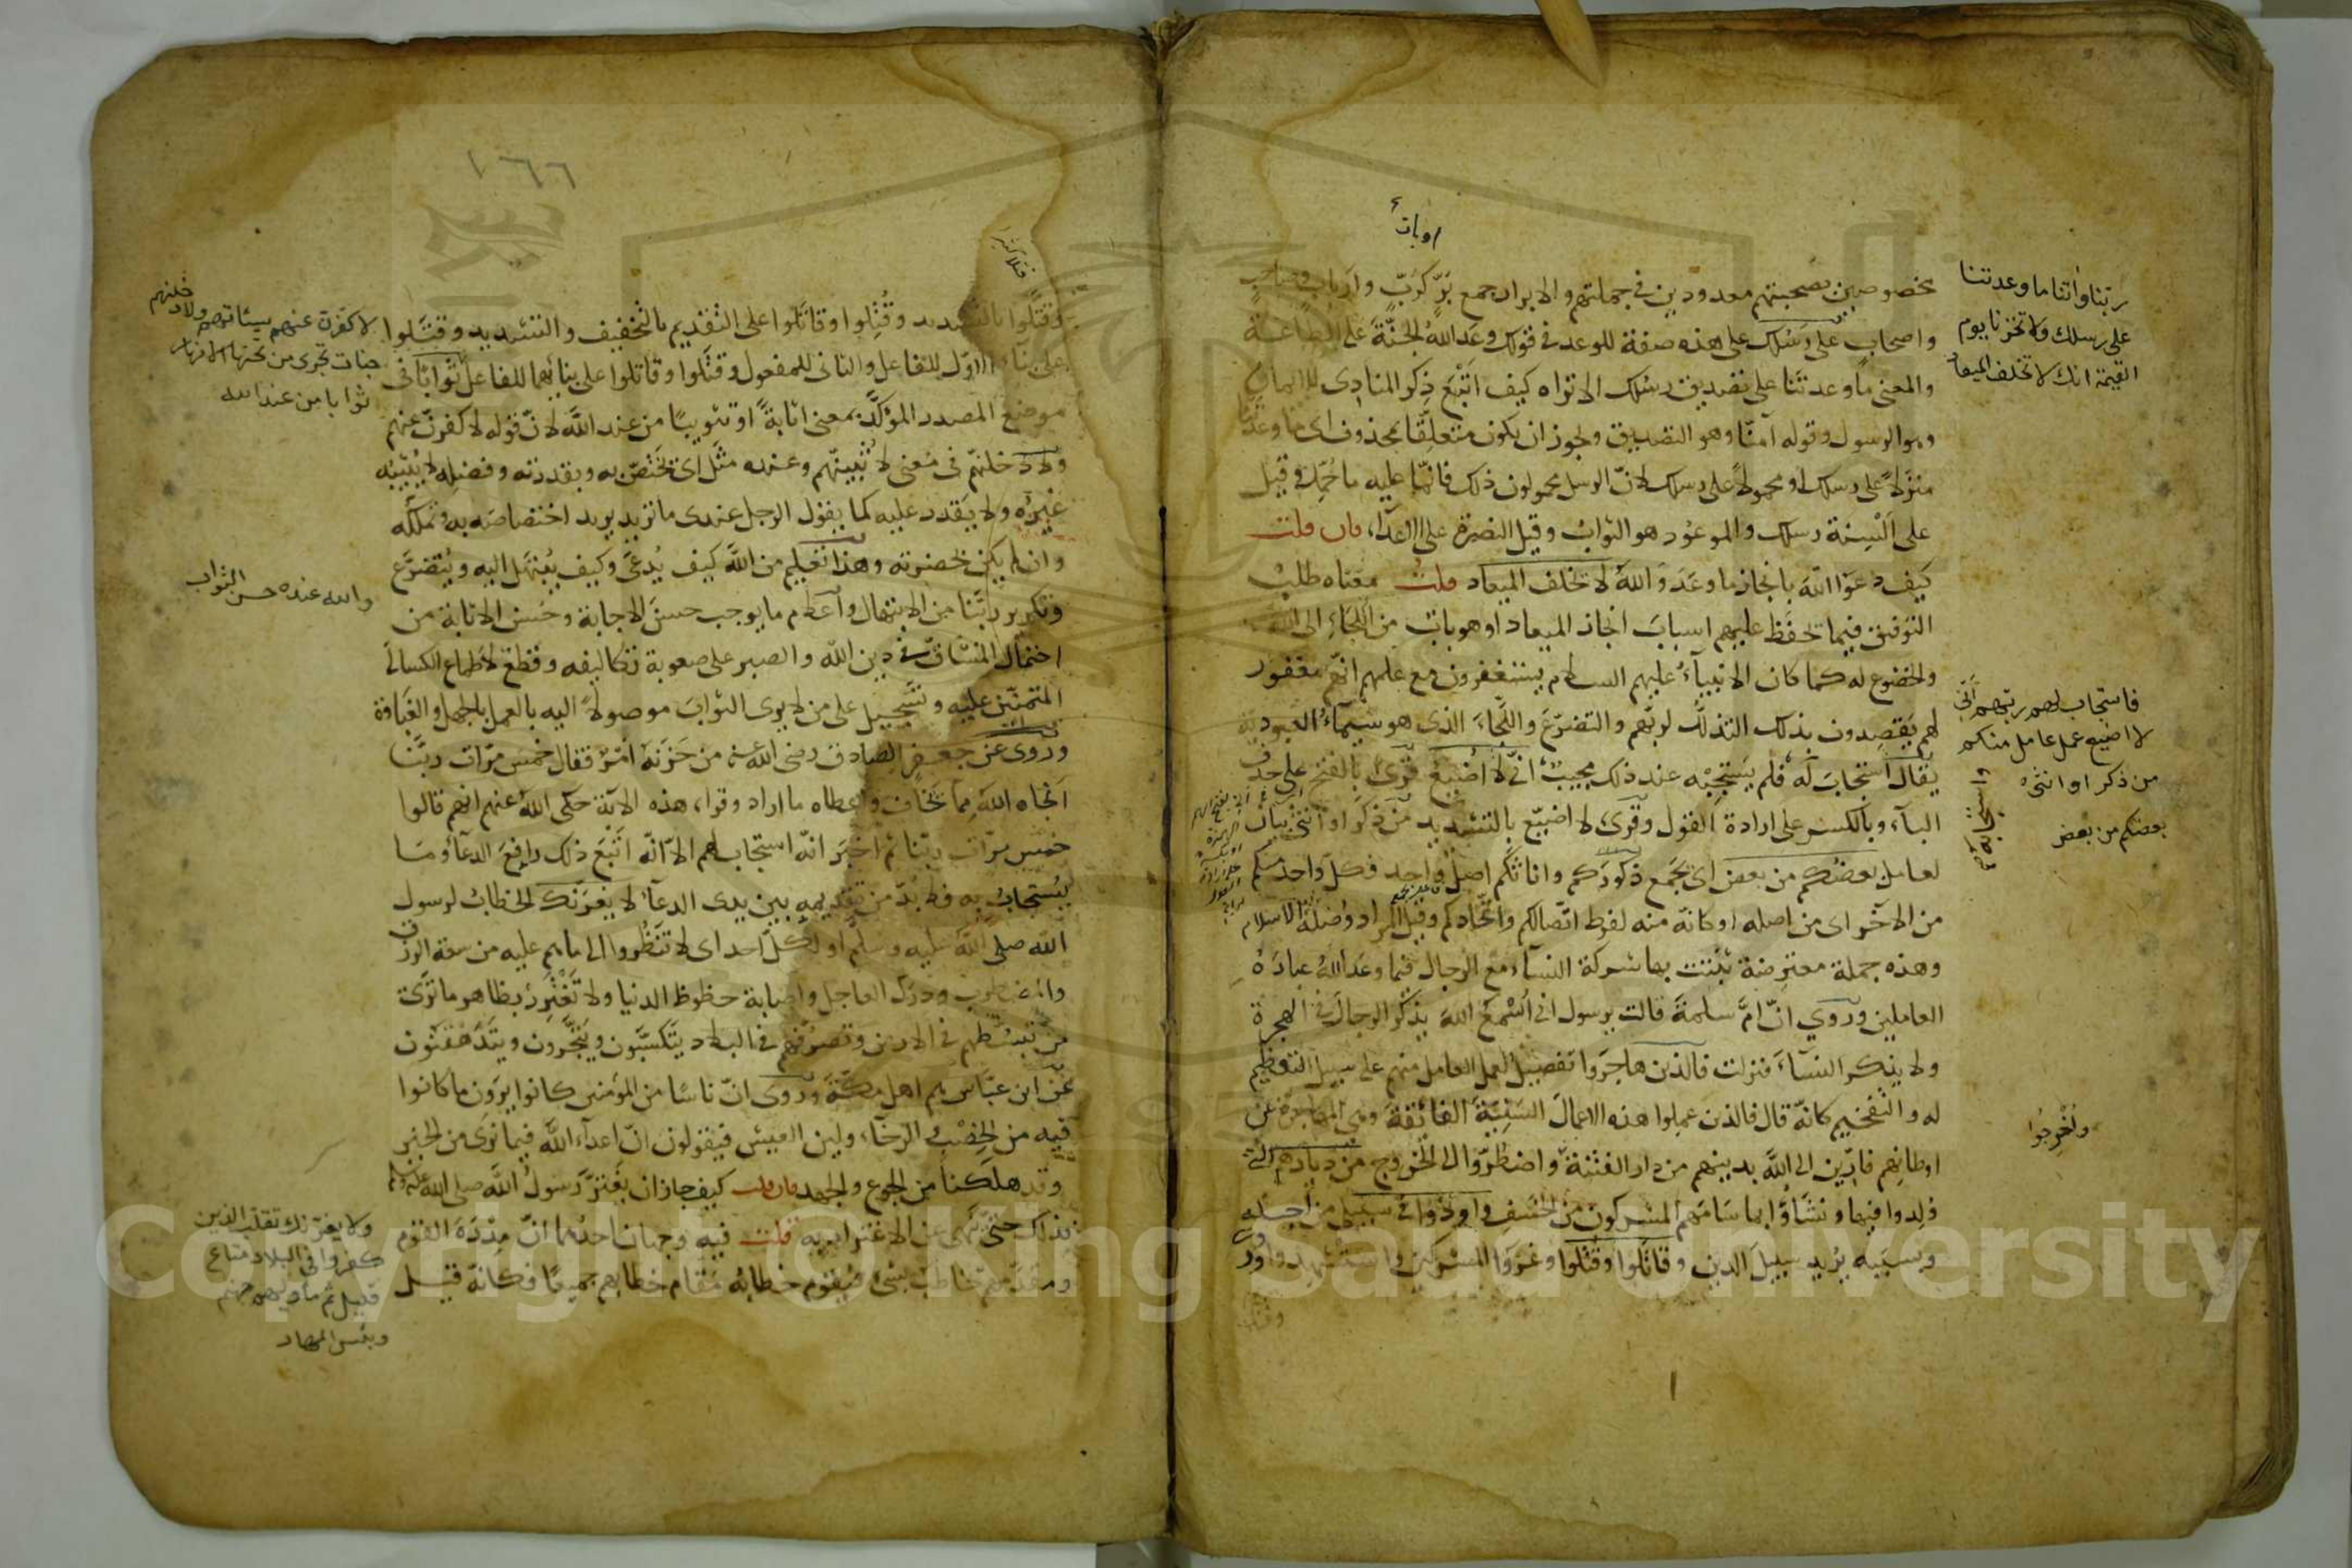 اوبات
مخصوصين بصحبتهم معدودين في جملتهم والابرار جمع بَرّ كَرَبّ وارباب وصاحب
واصحاب على رسلك على هذه صفة للوعد في قولك وعَدَ اللهُ الجنّةَ على الطاعة
والمعنى ما وعدتنا على تصديق رسلك الا تراه كيف اتبع ذكر المنادى للايمان
وهو الرسول وقوله آمنّا وهو التصديق ويجوز ان يكون متعلقًا بمحذوف اى ما وعدتنا
منزلاً على رسلك او محمولاً على رسلك لانّ الرسل محمولون ذلك فانّما عليه ما حُمِّل وقيل
على اَلْسِنة رسلك والموعود هو الثواب وقيل النصرة على الاعداء، فان قلت
كيف دعوا اللهَ بانجاز ما وعَدَ وَاللهُ لا يخلف الميعاد قلتُ معناه طلب
التوفيق فيما يحفظ عليهم اسبابَ انجاز الميعاد او هو باب من اللجاء الى الله
والخضوع له كما كان الانبياءُ عليهم السلام يستغفرون مع علمهم انّهم مغفور
لهم يقصدون بذلك التذلل لربّهم والتضرّعَ واللجاءَ الذى هو سيماءُ العبودية
يُقال استجابَ له فلم يستجبه عند ذلك مجيب انّى لا اُضيع قُرِئ بالفتح على حذف
الباء وبالكسر على ارادة القول وقُرِئ لا اضيّع بالتشديد من ذكر او انثى بيان
لعامل بعضكم من بعض اى يجمع ذكوركم واناثكم اصلٌ واحد فكل واحد منكم
من الآخر اى من اصله او كانّه منه لفرط اتّصالكم واتّحادكم وقيل المراد وُصلة الاسلام
وهذه جملة معترضة بُيّنت بها شركة النساء مع الرجال فيما وعَدَ اللهُ عبادَهُ
العاملين ورُوي انّ امّ سلمةَ قالت يرسول انى اَسْمعُ اللهَ يذكر الرجالَ في الهجرة
ولا يذكر النساءَ فنزلت فالذين هاجَروا تفصيلٌ لعمل العامل منهم على سبيل التعظيم
له والتفخيم كانّه قال فالذين عملوا هذه الاعمالَ السنِيّةَ الفائقةَ وهي المهاجرة عن
اوطانهم فارّين الى الله بدينهم من دار الفتنة واضطُرّوا الى الخروج من ديارهم التى
وُلِدوا فيها ونشأوا بما سَامَهم المشركون من الخسف واوذوا فى سبيلى من اجله
وبسببه يريد سبيلَ الدين وقاتَلوا وقُتِلوا وغزوا المشركين واستشهدوا
ربّنا واتنا ما وعدتنا
على رسلك ولا تخزنا يوم
القيمة انك لا تخلف الميعاد
فاستجاب لهم ربهم انى
لا اضيع عمل عامل منكم
من ذكر او انثى
بعضكم من بعض
واُخْرِجُوا
١٦٦
وقُتِّلوا بالتشديد وقُتِلوا وقاتَلوا على التقديم بالتخفيف والتشديد وقَتَلوا
على بناء الاوّل للفاعل والثانى للمفعول وقَتَلوا وقاتلوا على بنائهما للفاعل ثوابًا فى
موضع المصدر المؤكّد بمعنى اثابةً او تثويبًا من عند الله لانّ قوله لاكفرنّ عنهم
ولادخلنّهم فى معنى لاُثيبنّهم وعنده مَثَل اى يختصّ به وبقدرته وفضله لا يُثيبه
غيرُه ولا يقدر عليه كما يقول الرجل عندى ما تريد يريد اختصاصَه به وتملّكه
وان لم يكن بحضرته وهذا تعليم من الله كيف يُدعَى وكيف يُبتهَل اليه ويُتضرَّع
وتكرير ربّنا من الابتهال واعلام ما يوجب حسنَ الاجابة وحُسن الاثابة من
احتمال المشاقّ فى دين الله والصبر على صعوبة تكاليفه وقطع لاطماع الكسالى
المتمنّين عليه وتسجيل على من لا يرى الثوابَ موصولاً اليه بالعمل بالجهل والغَباوة
ورُوى عن جعفر الصادق رضى الله عنه من حَزَنَهُ اَمْرٌ فقال خمسَ مرّات ربّنا
انجاه الله مما يخاف واعطاه ما اراد وقرأ، هذه الآية حكى الله عنهم انهم قالوا
خمس مرّات ربّنا ثم اخبرَ انّه استجاب لهم الا انّه اتبع ذلك رافع الدعاء وما
يُستجابُ به فلا بدّ من تقديمه بين يدى الدعاء لا يغرّنّك الخطاب لرسول
الله صلى الله عليه وسلم او لكل احد اى لا تنظروا الى ما هم عليه من سعة الرزق
والمضطرب ودرك العاجل واصابة حظوظ الدنيا ولا تَغْتَرِرْ بظاهر ما ترى
من تبسُّطهم فى الارض وتصرّفهم فى البلاد يتكسّبون ويتّجرون ويتدهقنون
عن ابن عبّاس هم اهل مكّة ورُوى انّ ناسًا من المؤمنين كانوا يرَون ما كانوا
فيه من الخِصْب الرخاء ولين العيش فيقولون انّ اعداءَ الله فيما نرى من الخير
وقد هلكنا من الجوع والجهد فان قلت كيف جاز ان يغترّ رسولُ الله صلى الله عليه وسلم
بذلك حتى نُهى عن الاغترار به قلت فيه وجهان احدهما انّ مِدْرَهَ القوم
ومقدّمهم يخاطب بشئ فيقوم خطابه مقام خطابهم جميعًا فكانّه قيل
لاكفرن عنهم سيئاتهم ولادخلنهم
جنات تجرى من تحتها الانهار
ثوابا من عند الله
والله عنده حسن الثواب
ولا يغرّنك تقلب الذين
كفروا فى البلاد متاع
قليل ثم ماويهم جهنم
وبئس المهاد
Copyright © King Saud University